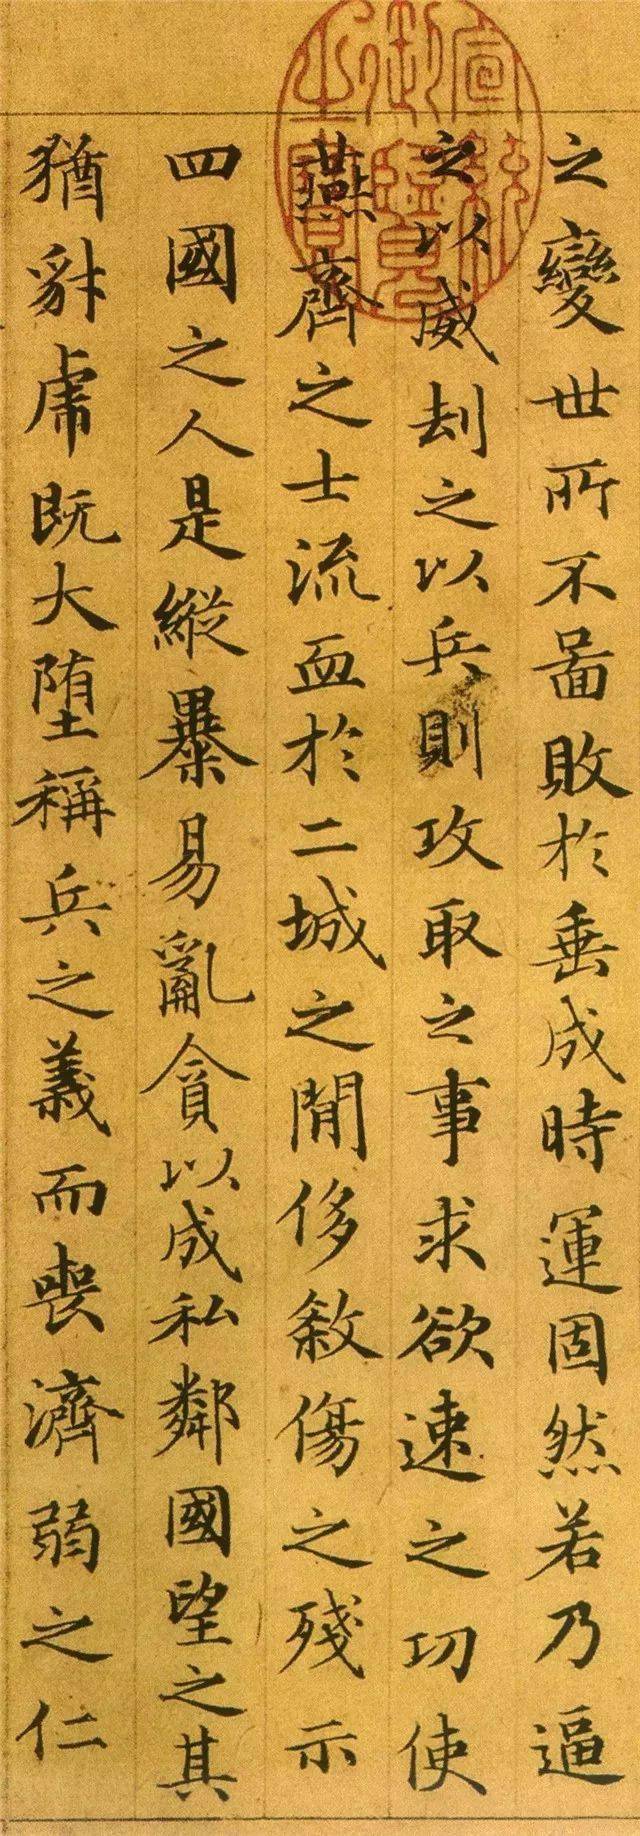 宣統御覽之寶
之變世所不啚敗於垂成時運固然若乃逼
之以威刦之以兵則攻取之事求欲速之功使
燕齊之士流血於二城之閒侈殺傷之殘示
四國之人是縱暴易亂貪以成私鄰國望之其
猶豺虎既大墮稱兵之義而喪濟弱之仁